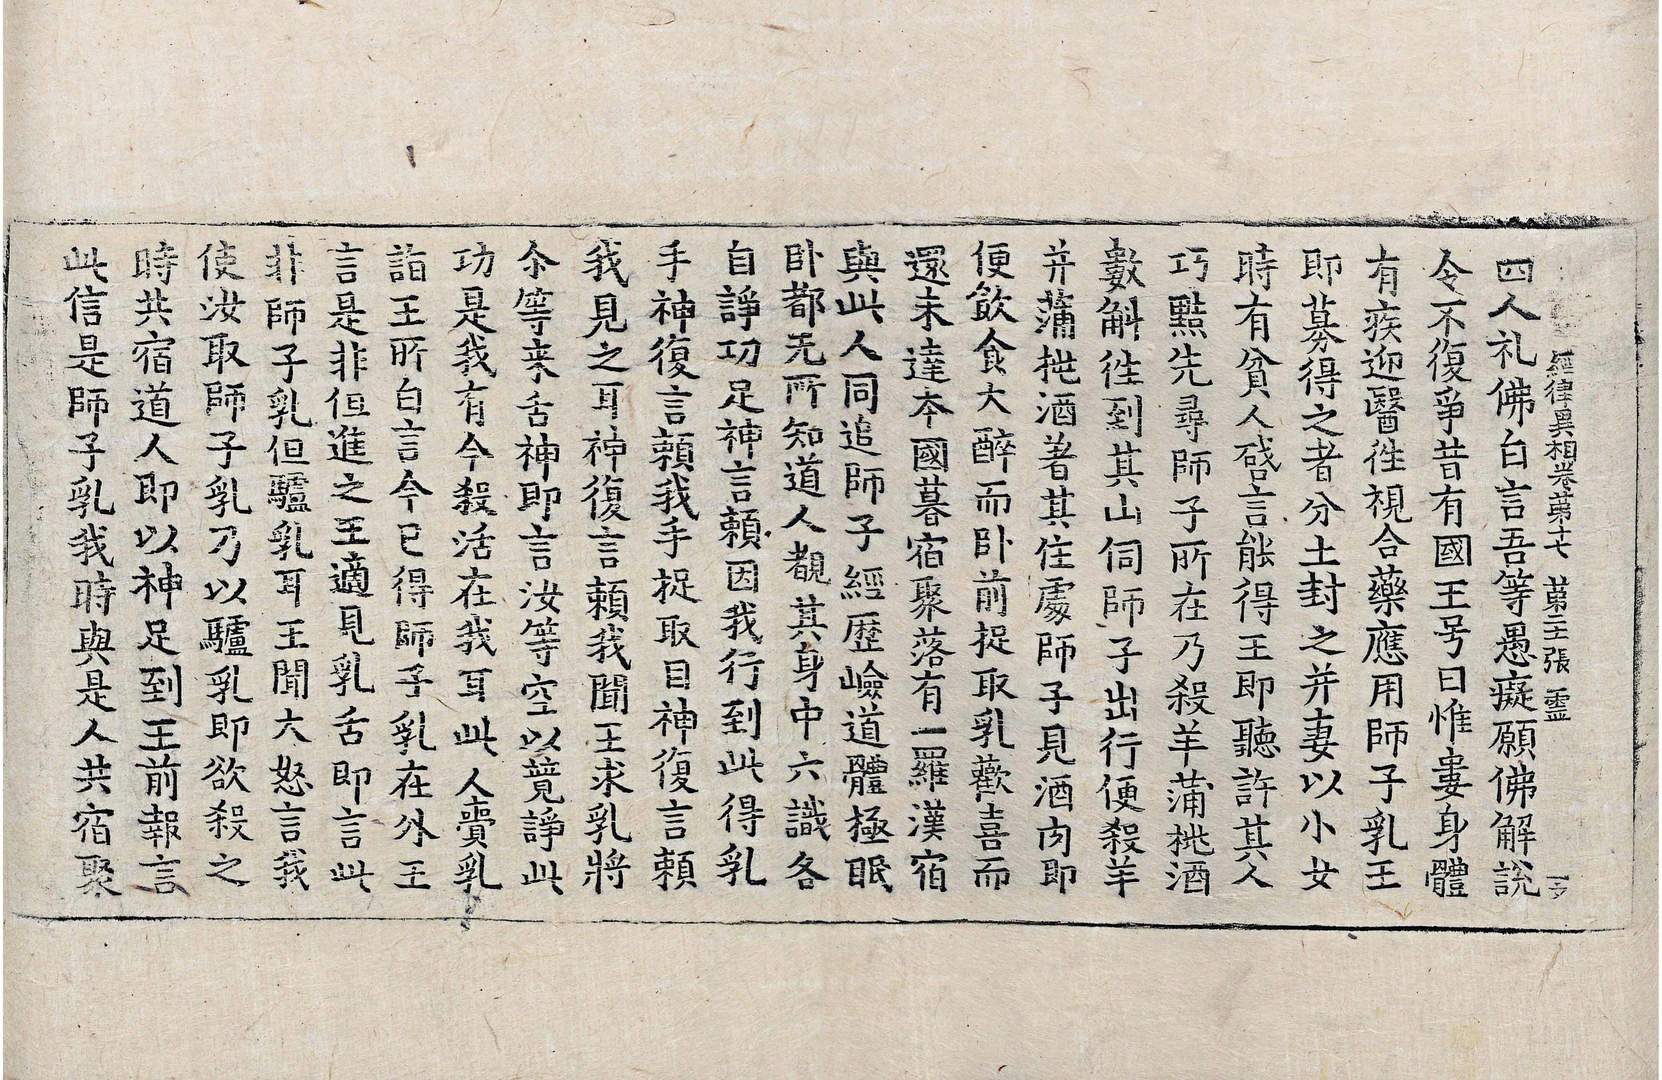 經律異相卷第十七　第二十張　靈
四人礼佛白言吾等愚癡願佛解說
令不復爭昔有國王号曰惟婁身體
有疾迎醫徃視合藥應用師子乳王
即募得之者分土封之并妻以小女
時有貧人啓言能得王即聽許其人
巧黠先尋師子所在乃殺羊蒲桃酒
數斛徃到其山伺師子出行便殺羊
并蒲桃酒著其住處師子見酒肉即
便飲食大醉而卧前捉取乳歡喜而
還未達本國暮宿聚落有一羅漢宿
與此人同追師子經歷嶮道體極眠
卧都无所知道人覩其身中六識各
自諍功足神言賴因我行到此得乳
手神復言賴我手捉取目神復言賴
我見之耳神復言賴我聞王求乳將
尒等来舌神即言汝等空以竟諍此
功是我有今殺活在我耳此人賷乳
詣王所白言今已得師子乳在外王
言是非但進之王適見乳舌即言此
非師子乳但驢乳耳王聞大怒言我
使汝取師子乳乃以驢乳即欲殺之
時共宿道人即以神足到王前報言
此信是師子乳我時與是人共宿聚